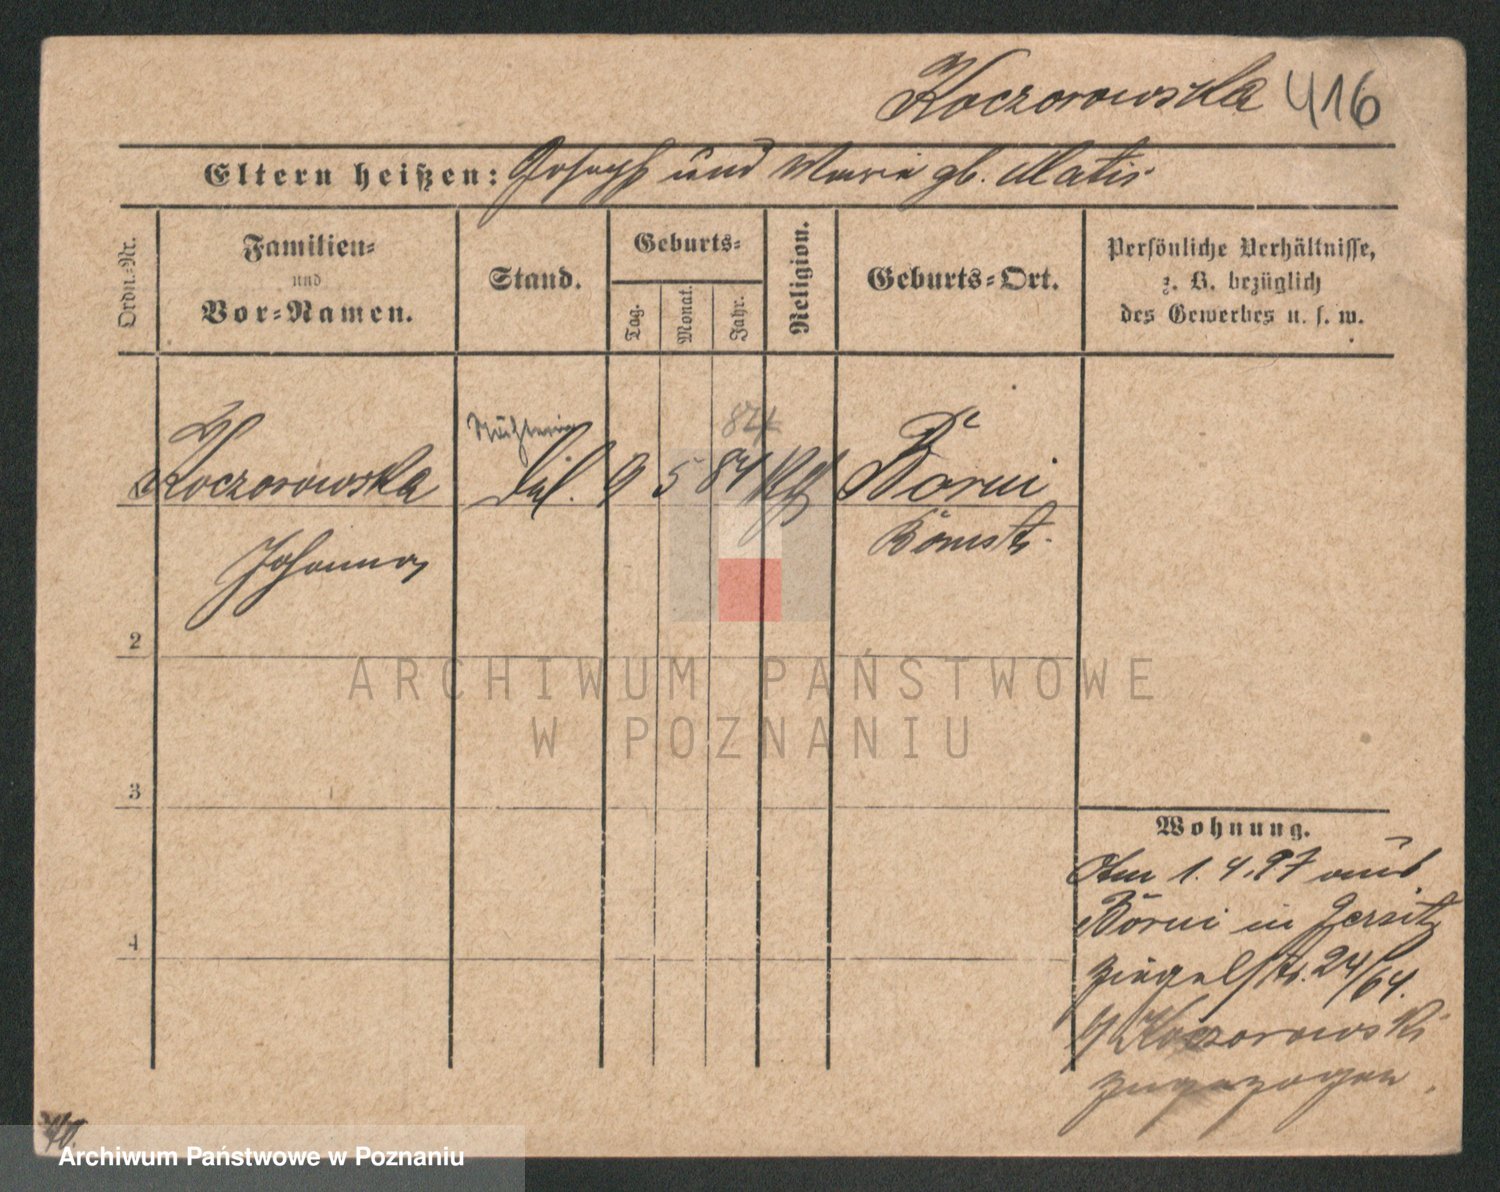 Koczorowska 416
Eltern heißen: Joseph und Marie gb. Matis
Ordn.-Nr.
Familien-
und
Vor-Namen.
Stand.
Geburts-
Tag.
Monat.
Jahr.
Religion.
Geburts-Ort.
Persönliche Verhältnisse,
z. B. bezüglich
des Gewerbes u. s. w.
84
Koczorowska 9 5 84 Bórui
Johanna Bomst
2
3
4
Wohnung.
Am 1. 4. 97 aus
Bórui in Jersitz
Ziegelstr. 24/64.
Koczorowski
zugezogen.
ARCHIWUM PAŃSTWOWE
W POZNANIU
Archiwum Państwowe w Poznaniu